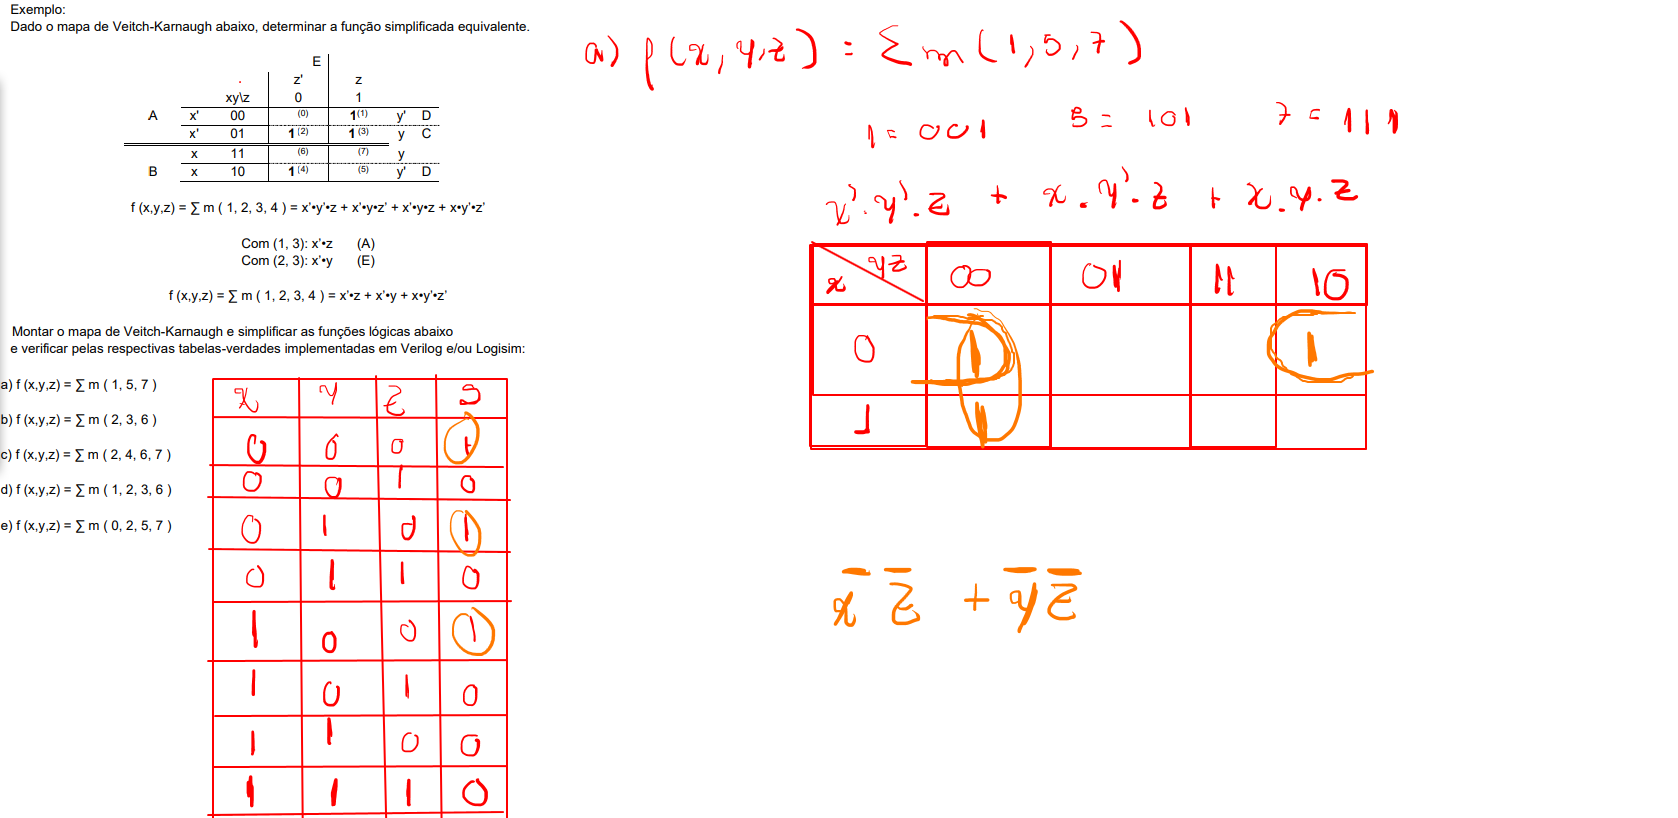 Exemplo:
Dado o mapa de Veitch-Karnaugh abaixo, determinar a função simplificada equivalente.
E
z' z
xy\z 0 1
A x' 00 (0) 1 (1) y' D
x' 01 1 (2) 1 (3) y C
x 11 (6) (7) y
B x 10 1 (4) (5) y' D
f (x,y,z) = ∑ m ( 1, 2, 3, 4 ) = x'•y'•z + x'•y•z' + x'•y•z + x•y'•z'
Com (1, 3): x'•z (A)
Com (2, 3): x'•y (E)
f (x,y,z) = ∑ m ( 1, 2, 3, 4 ) = x'•z + x'•y + x•y'•z'
Montar o mapa de Veitch-Karnaugh e simplificar as funções lógicas abaixo
e verificar pelas respectivas tabelas-verdades implementadas em Verilog e/ou Logisim:
a) f (x,y,z) = ∑ m ( 1, 5, 7 )
b) f (x,y,z) = ∑ m ( 2, 3, 6 )
c) f (x,y,z) = ∑ m ( 2, 4, 6, 7 )
d) f (x,y,z) = ∑ m ( 1, 2, 3, 6 )
e) f (x,y,z) = ∑ m ( 0, 2, 5, 7 )
x y z S
0 0 0 1
0 0 1 0
0 1 0 1
0 1 1 0
1 0 0 1
1 0 1 0
1 1 0 0
1 1 1 0
a) f(x,y,z) = ∑ m (1,5,7)
1 = 001 5 = 101 7 = 111
x'.y'.z + x.y'.z + x.y.z
x yz 00 01 11 10
0 1 1
1 1
x̅ z̅ + y̅ z̅